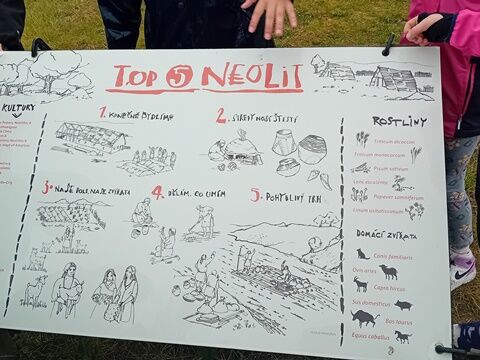 TOP 5 NEOLIT
KULTURY
1. KONEČNĚ BYDLÍME
2. STŘEPY NOSÍ ŠTĚSTÍ
3. NAŠE POLE, NAŠE ZVÍŘATA
4. DĚLÁM, CO UMÍM
5. POHYBLIVÝ TRH
ROSTLINY
Triticum dicoccon
Triticum monococcum
Pisum sativum
Lens esculenta
Papaver somniferum
Linum usitatissimum
DOMÁCÍ ZVÍŘATA
Canis familiaris
Ovis aries
Capra hircus
Sus domesticus
Bos taurus
Equus caballus